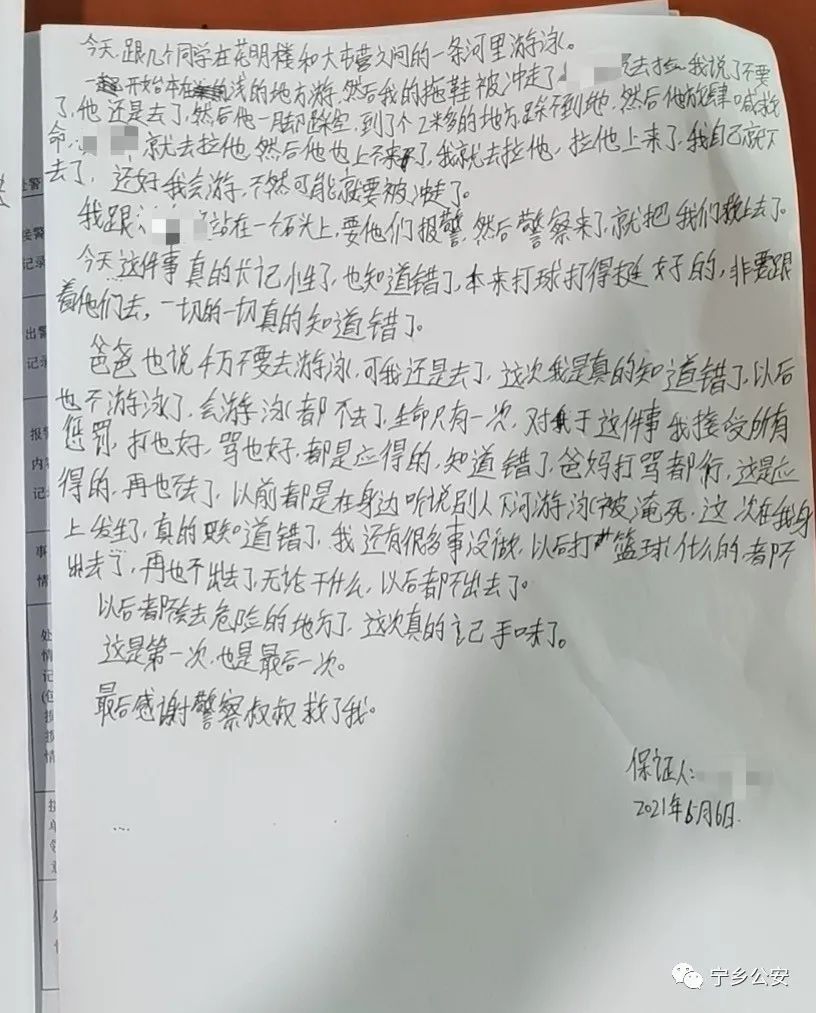 今天跟几个同学在花明楼和大屯营之间的一条河里游泳。
一开始本在浅的地方游,然后我的拖鞋被冲走了 去捡,我说了不要
了,他还是去了,然后他一脚踩空,到了个2米多的地方踩不到地,然后他放肆喊救
命, 就去拉他,然后他也上不来了,我就去拉他,拉他上来了,我自己就下
去了,还好我会游,不然可能就要被冲走了。
我跟 站在一个石头上,要他们报警,然后警察来了,就把我们救上去了。
今天这件事真的长记性了,也知道错了,本来打球打得挺好的,非要跟
着他们去,一切的一切真的知道错了。
爸爸也说千万不要去游泳,可我还是去了,这次我是真的知道错了,以后
也不游泳了,会游泳都不去了,生命只有一次,对于这件事我接受所有
惩罚,打也好,骂也好,都是应得的,知道错了,爸妈打骂都行,这是应
得的,再也不去了,以前都是在身边听说别人下河游泳被淹死,这次在我身
上发生了,真的知道错了,我还有很多事没做,以后打篮球什么的都不
出去了,再也不出去了,无论干什么,以后都不出去了。
以后都不会去危险的地方了,这次真的记手味了。
这是第一次,也是最后一次。
最后感谢警察叔叔救了我。
保证人:
2021年5月6日.
处警
接警
记录
出警
记录
报警
内容
记录
事
情
处
情
记
情
宁乡公安